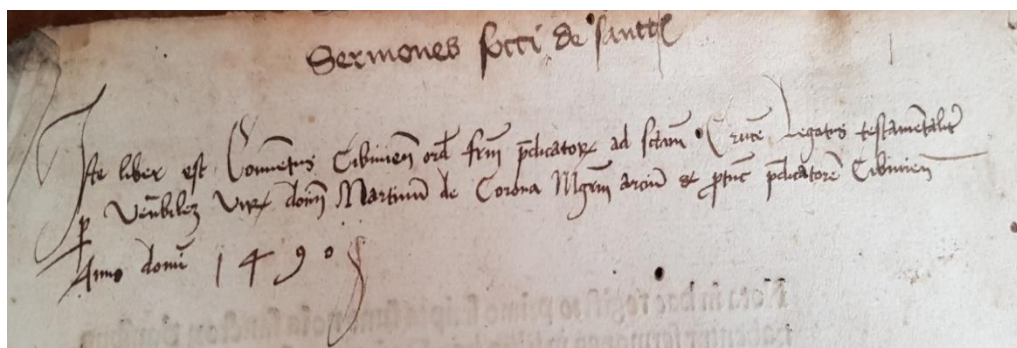 Sermones socci de sanctis
Iste liber est Conuētus Cibinień ord̄ frm̄ p̄dicatoꝝ ad sctām Crucē Legatus testamētalit̄
ꝑ Ven̄bilem Virꝝ dom̄ Martinū de Corona Mgr̄m arciū et ꝓtūc p̄dicatorē Cibinień
Anno domī 1490